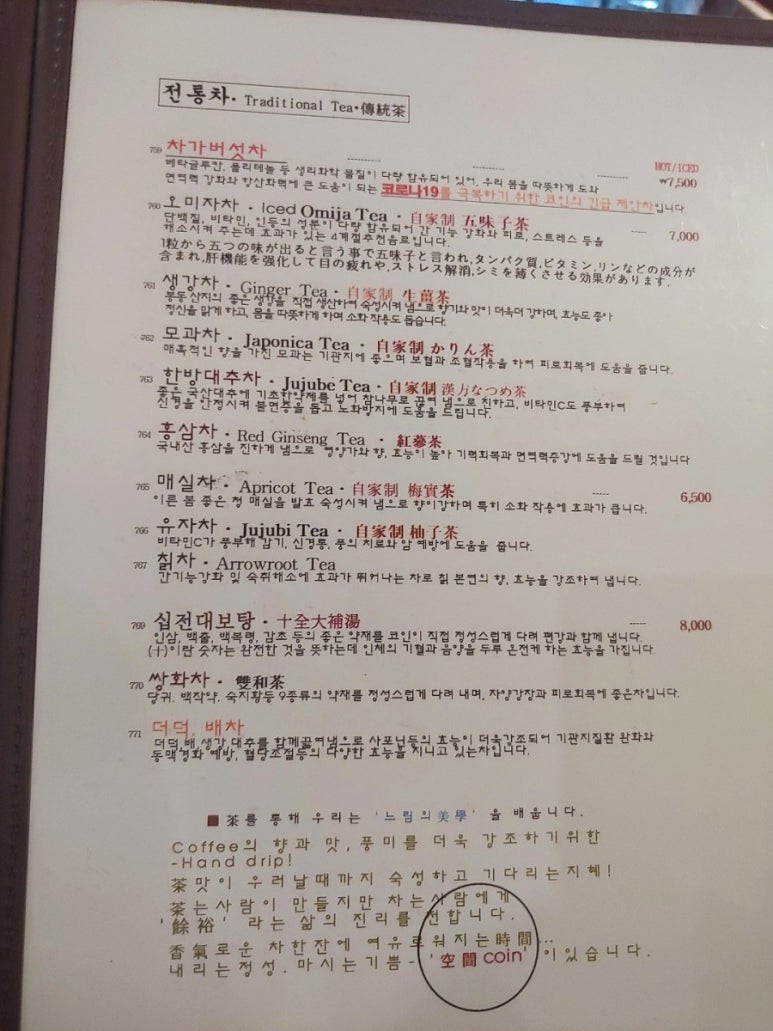 전통차• Traditional Tea•傳統茶
759 차가버섯차 HOT/ICED
베타글루칸, 폴리테놀 등 생리화학 물질이 다량 함유되어 있어, 우리 몸을 따뜻하게 도와 ₩7,500
면역력 강화와 항산화력에 큰 도움이 되는 코로나19를 극복하기 위한 코인의 긴급 제안차입니다.
760 오미자차 • Iced Omija Tea • 自家制 五味子茶 7,000
단백질, 비타민, 인등의 성분이 다량 함유되어 간 기능 강화와 피로, 스트레스 등을
해소시켜 주는데 효과가 있는 4계절추천음료입니다.
1粒から五つの味が出ると言う事で五味子と言われ,タンパク質,ビタミン,リンなどの成分が
含まれ,肝機能を強化して目の疲れや,ストレス解消,シミを薄くさせる効果があります.
761 생강차 • Ginger Tea • 自家制 生薑茶
봉동 산지의 좋은 생강을 직접 생산하여 숙성시켜 냄으로 향기와 맛이 더욱더 강하며, 효능도 좋아
정신을 맑게 하고, 몸을 따뜻하게 하며 소화 작용도 돕습니다.
762 모과차 • Japonica Tea • 自家制 かりん茶
매혹적인 향을 가진 모과는 기관지에 좋으며 보혈과 조혈작용을 하여 피로회복에 도움을 줍니다.
763 한방대추차 • Jujube Tea • 自家制 漢方なつめ茶
좋은 국산대추에 기초한약제를 넣어 참나무로 끓여 냄으로 진하고, 비타민C도 풍부하여
신경을 안정시켜 불면증을 돕고 노화방지에 도움을 드립니다.
764 홍삼차 • Red Ginseng Tea • 紅蔘茶
국내산 홍삼을 진하게 냄으로 영양가와 향, 효능이 높아 기력회복과 면역력증강에 도움을 드릴 것입니다
765 매실차 • Apricot Tea • 自家制 梅實茶 6,500
이른 봄 좋은 청 매실을 발효 숙성시켜 냄으로 향이강하며 특히 소화 작용에 효과가 큽니다.
766 유자차 • Jujubi Tea • 自家制 柚子茶
비타민C가 풍부해 감기, 신경통, 풍의 치료와 암 예방에 도움을 줍니다.
767 칡차 • Arrowroot Tea
간기능강화 및 숙취해소에 효과가 뛰어나는 차로 칡 본연의 향, 효능을 강조하여 냅니다.
769 십전대보탕 • 十全大補湯 8,000
인삼, 백출, 백목령, 감초 등의 좋은 약재를 코인이 직접 정성스럽게 다려 편강과 함께 냅니다.
(十)이란 숫자는 완전한 것을 뜻하는데 인체의 기혈과 음양을 두루 온전케 하는 효능을 가집니다.
770 쌍화차 • 雙和茶
당귀, 백작약, 숙지황등 9종류의 약재를 정성스럽게 다려 내며, 자양강장과 피로회복에 좋은차입니다.
771 더덕, 배차
더덕,배,생강,대추를 함께끓여냄으로 사포닌등의 효능이 더욱강조되어 기관지질환 완화와
동맥경화 예방, 혈당조절등의 다양한 효능을 지니고 있는차입니다.
■ 茶를 통해 우리는 '느림의 美學' 을 배웁니다.
Coffee의 향과 맛, 풍미를 더욱 강조하기위한
-Hand drip!
茶맛이 우러날때까지 숙성하고 기다리는지혜!
茶는사람이 만들지만 차는사람에게
'餘裕' 라는 삶의 진리를 전합니다.
香氣로운 차한잔에 여유로워지는時間…
내리는정성. 마시는기쁨- '空間coin' 이있습니다.